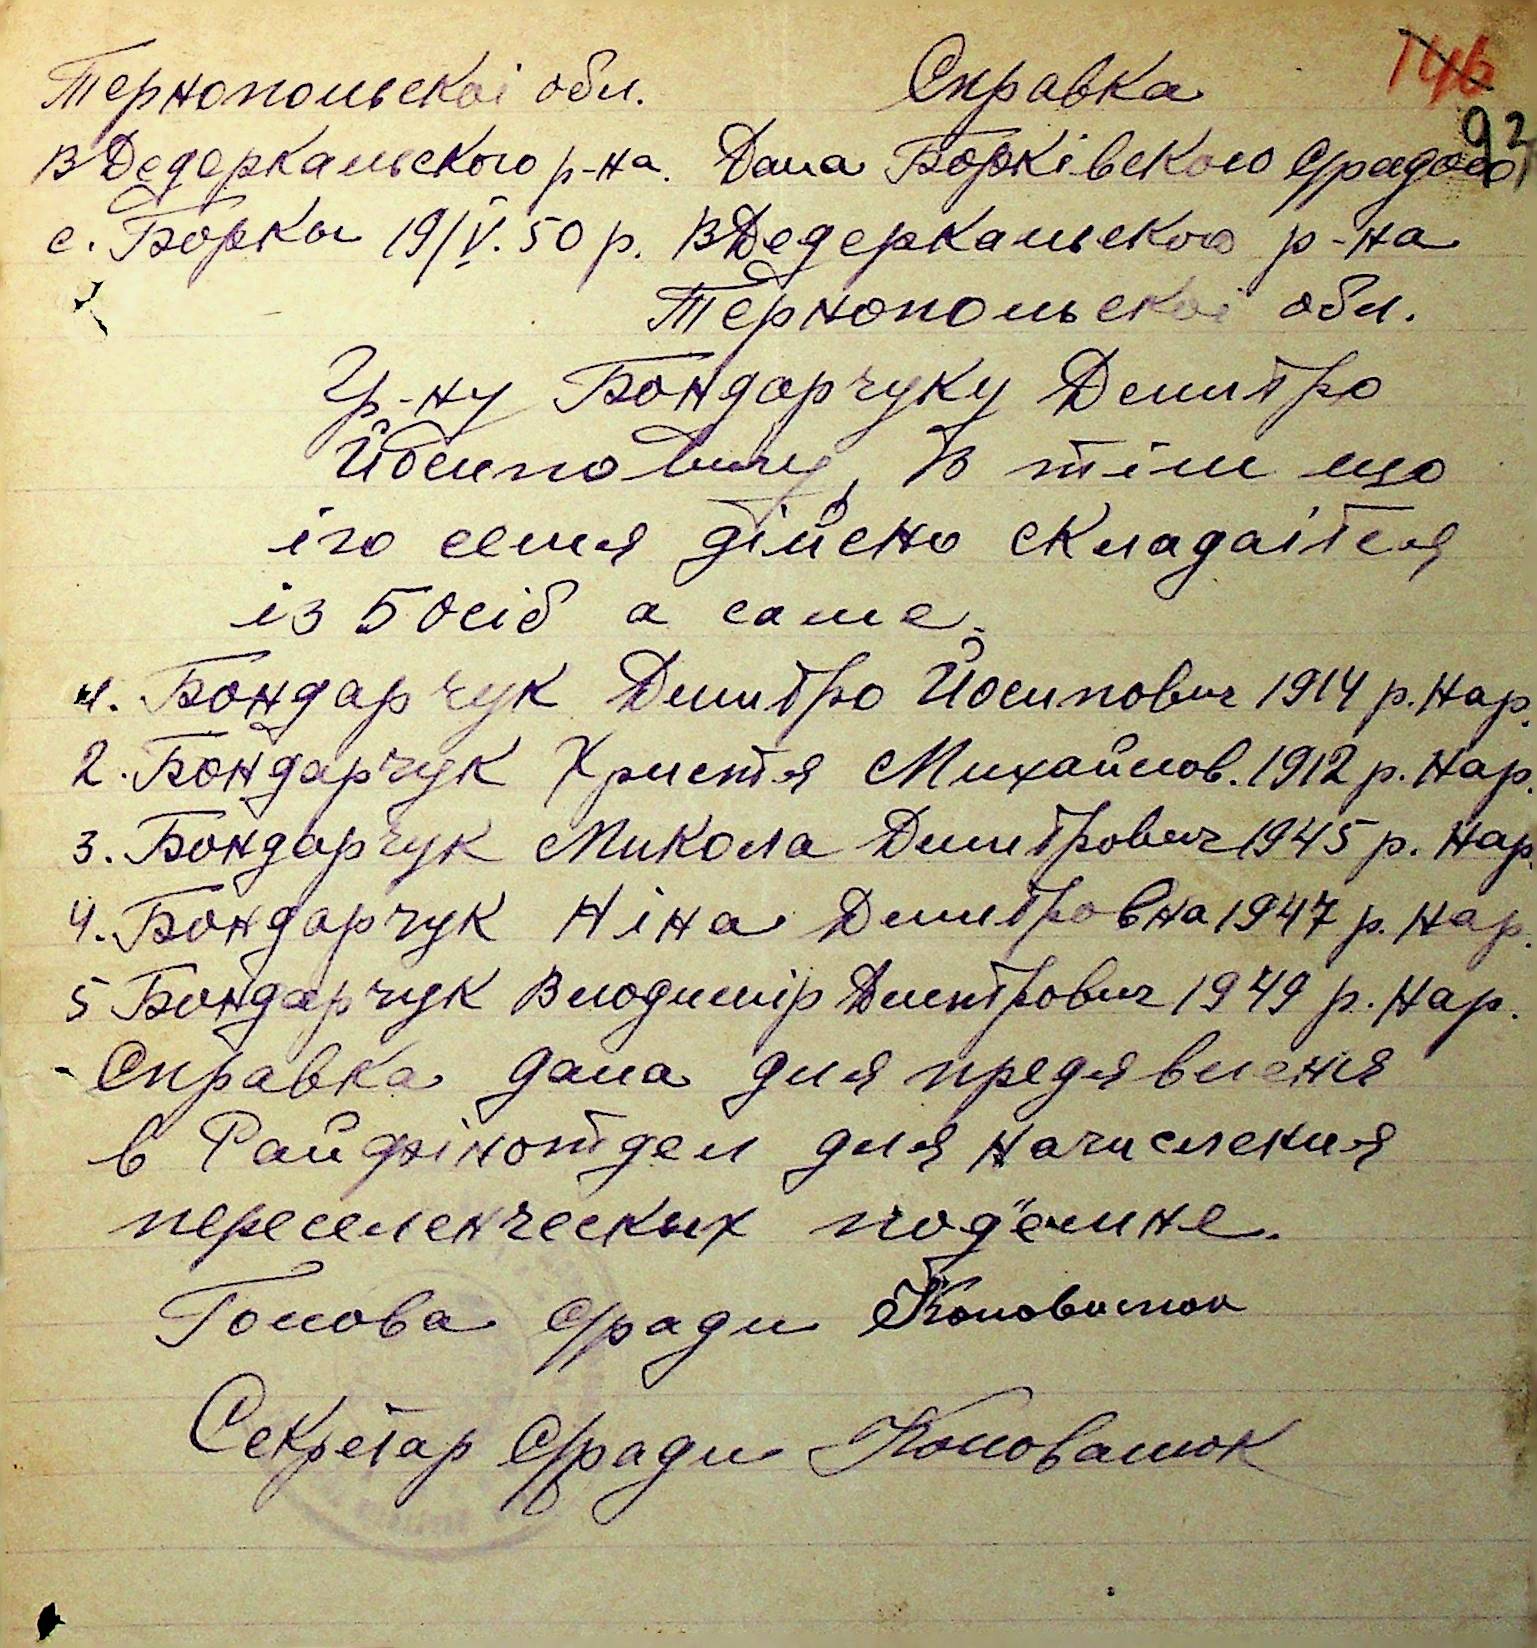 146
92
Тернопольскої обл. Справка
ВДедеркальського р-на. Дана Борківською с/радою
с. Борки 19/V.50 р. ВДедеркальского р-на
Тернопольскої обл.
Гр-ну Бондарчуку Дмитро
Йосиповичу, В тім що
іго семя дійсно складаїтся
із 5 осіб а саме.
1. Бондарчук Дмитро Йосипович 1914 р. нар.
2. Бондарчук Христя Михайлов. 1912 р. нар.
3. Бондарчук Микола Дмитрович 1945 р. нар.
4. Бондарчук Ніна Дмитровна 1947 р. нар.
5 Бондарчук Влодимір Дмитрович 1949 р. нар.
Справка дана для предявленя
в Райфінотдел для начисления
переселенческых подъемне.
Голова с/ради
Секретар с/ради Коновалюк